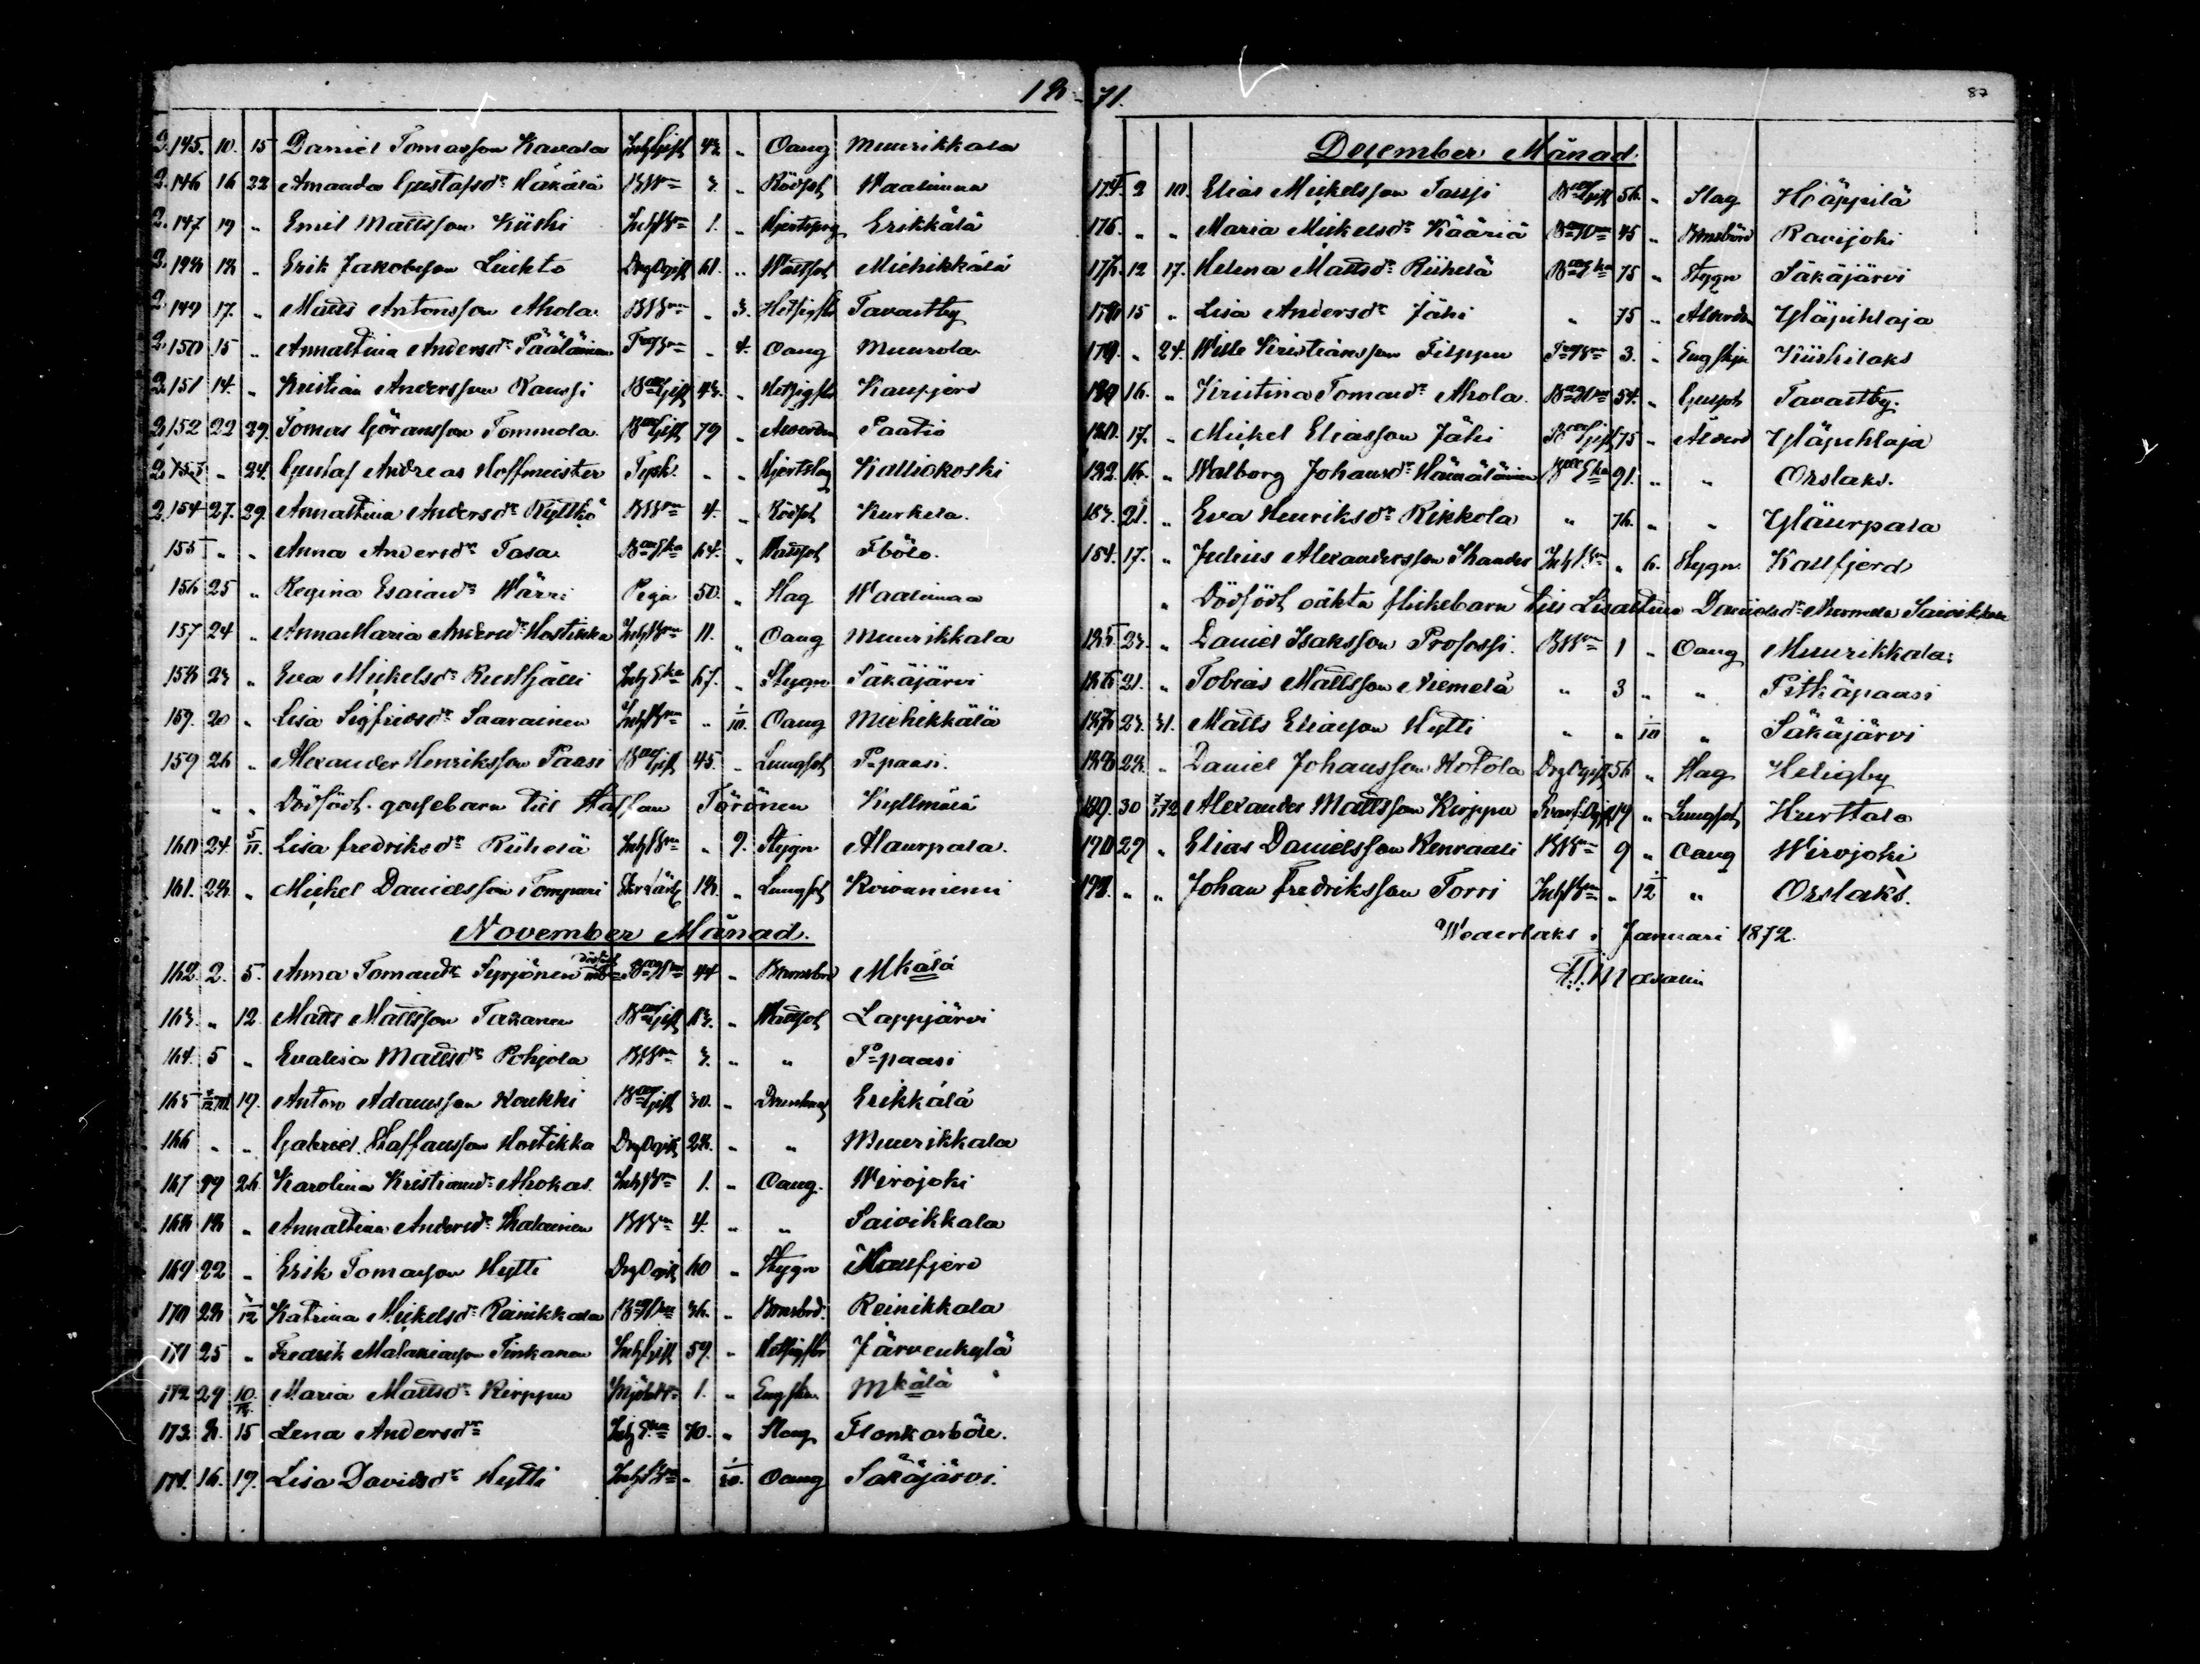 18
145. 10. 15 Daniel Tomasson Kavala InhGift 42 " Oäng Muurikkala
2. 146 16 22 Amanda Gustafsdr Häkälä 3. " Rödsot Waalimaa
2. 147 19 " Emil Mattsson Kiiski 1. " Erikkälä
2. 148 18 " Erik Jakobsson Luhto DrgDgift 61. " Wattsot Miehikkälä
2. 149 17. " Matts Antonsson Ahola " 3. Hetsigfbr Tavastby
2. 150 15 " Annastina Andersdr Pääläinen " 4. Oäng Muurola
2. 151 14. " Kristian Andersson Naussi 43. " Hetsigfbr Kausfjerd
2. 152 22 29. Tomas Göransson Tommola 79 " Ålderdom Paatio
2. 153 " 24. Gustaf Andreas Hoffmeister Tysk. " " Hjertslag Kalliokoski
2. 154 27. 29. Annastina Andersdr Kyttö 4. " Rödsot Kurkela.
155 " " Anna Andersdr Tasa 64. " Wattsot
156 25 " Regina Esaiasdr Wärri Piga 50. " Hag Waalimaa
157 24 " AnnaMaria Andersdr Hostikka 11. " Oäng Muurikkala
158 23 " Eva Mickelsdr Ruotsalli 67. " Stygn Säkäjärvi
159. 20 " Lisa Sigfridsdr Saarainen " 1/10. Oäng Miehikkälä
159 26 " Alexander Henriksson Paasi 45. " Lungsot P-paasi.
" " Dödfödt gossebarn till Staffan Törönen Kyllmälä
160 24. 5/11. Lisa Fredriksdr Riihelä " 9. Stygn Alaurpala.
161. 28. " Mickel Danielsson Tompuri 18. " Lungsot Koivuniemi
November Månad.
162. 2. 5. Anna Tomasdr Syrjönen 44 " Barnsbrd Mkälä
163. " 12 Matts Mattsson Takanen 63. " Wattsot Lappjärvi
164. 5 " Evalisa Mattsdr Pohjola 3. " " P-paasi
165 19. Anton Adamsson Koukki 30. " Drunknad Erikkälä
166 " " Gabriel Staffansson Hostikka 28. " " Muurikkala
167 19 26. Karolina Kristiansdr Ahokas. 1. " Oäng. Wirojoki
168 18 " Annastina Andersdr 4. " " Saivikkala
169 22 " Erik Tomasson Hytti 60 " Stygn Kausfjerd
170 28 Katrina Mickelsdr Reinikkala 36. " Barnsbrd. Reinikkala
171 25 " Fredrik Malakiasson Tinkanen InhGift 59. " Hetsigfbr Järvenkylä
172 29 10. Maria Mattsdr Kirppu 1. " Eng. sju. Mkälä
173. 8. 15 Lena Andersdr 70. " Slag Flonkarböle.
174. 16. 19. Lisa Davidsdr Hytti " Oäng Säkäjärvi.
71. 87
December Månad.
174. 2 10. Elias Mickelsson Taussi 56. " Slag Häppilä
176. " " Maria Mickelsdr Kääriä 45 " Barnsbörd Ravijoki
176 12 17. Helena Mattsdr Riihelä 75 " Stygn Säkäjärvi
178 15 " Lisa Andersdr Jähi " 75 " Ålderdom Yläpihlaja
179. " 24. Wille Kristiansson Filppu 3. " Eng. sju Kiiskilaks
180 16. " Kristina Tomasdr Ahola. 54. " Gulsot Tavastby.
181. 17. " Mickel Eliasson Jähi 75 " Ålderd Yläpihlaja
182. 16. " Walborg Johansdr Hämäläinen 91. " " Orslaks.
183. 21. " Eva Henriksdr Rikkola " 76. " " Yläurpala
184. 17. " Julius Alexandersson " 6. Stygn. Kausfjerd
" Dödfödt oäkta flickebarn till Lisastina Danielsdr Nurmela Saivikkala
185. 23. " Daniel Isaksson Profossi. 1 " Oäng Muurikkala.
186. 21. " Tobias Mattsson Niemelä " 3 " " Pitkäpaasi
187 23 31. Matts Eliasson Hytti " " 1/10 " Säkäjärvi
188 28. " Daniel Johansson Kotola DrgDgift 56. " Hag Heligby
189. 30 Alexander Mattsson Kirppu 19 " Lungsot Hurttala
190 29 " Elias Danielsson Kenraali 9 " Oäng Wirojoki
191. " " Johan Fredriksson Torri " 1/12 " Orslaks.
Wederlaks i Januari 1872.
Masalin